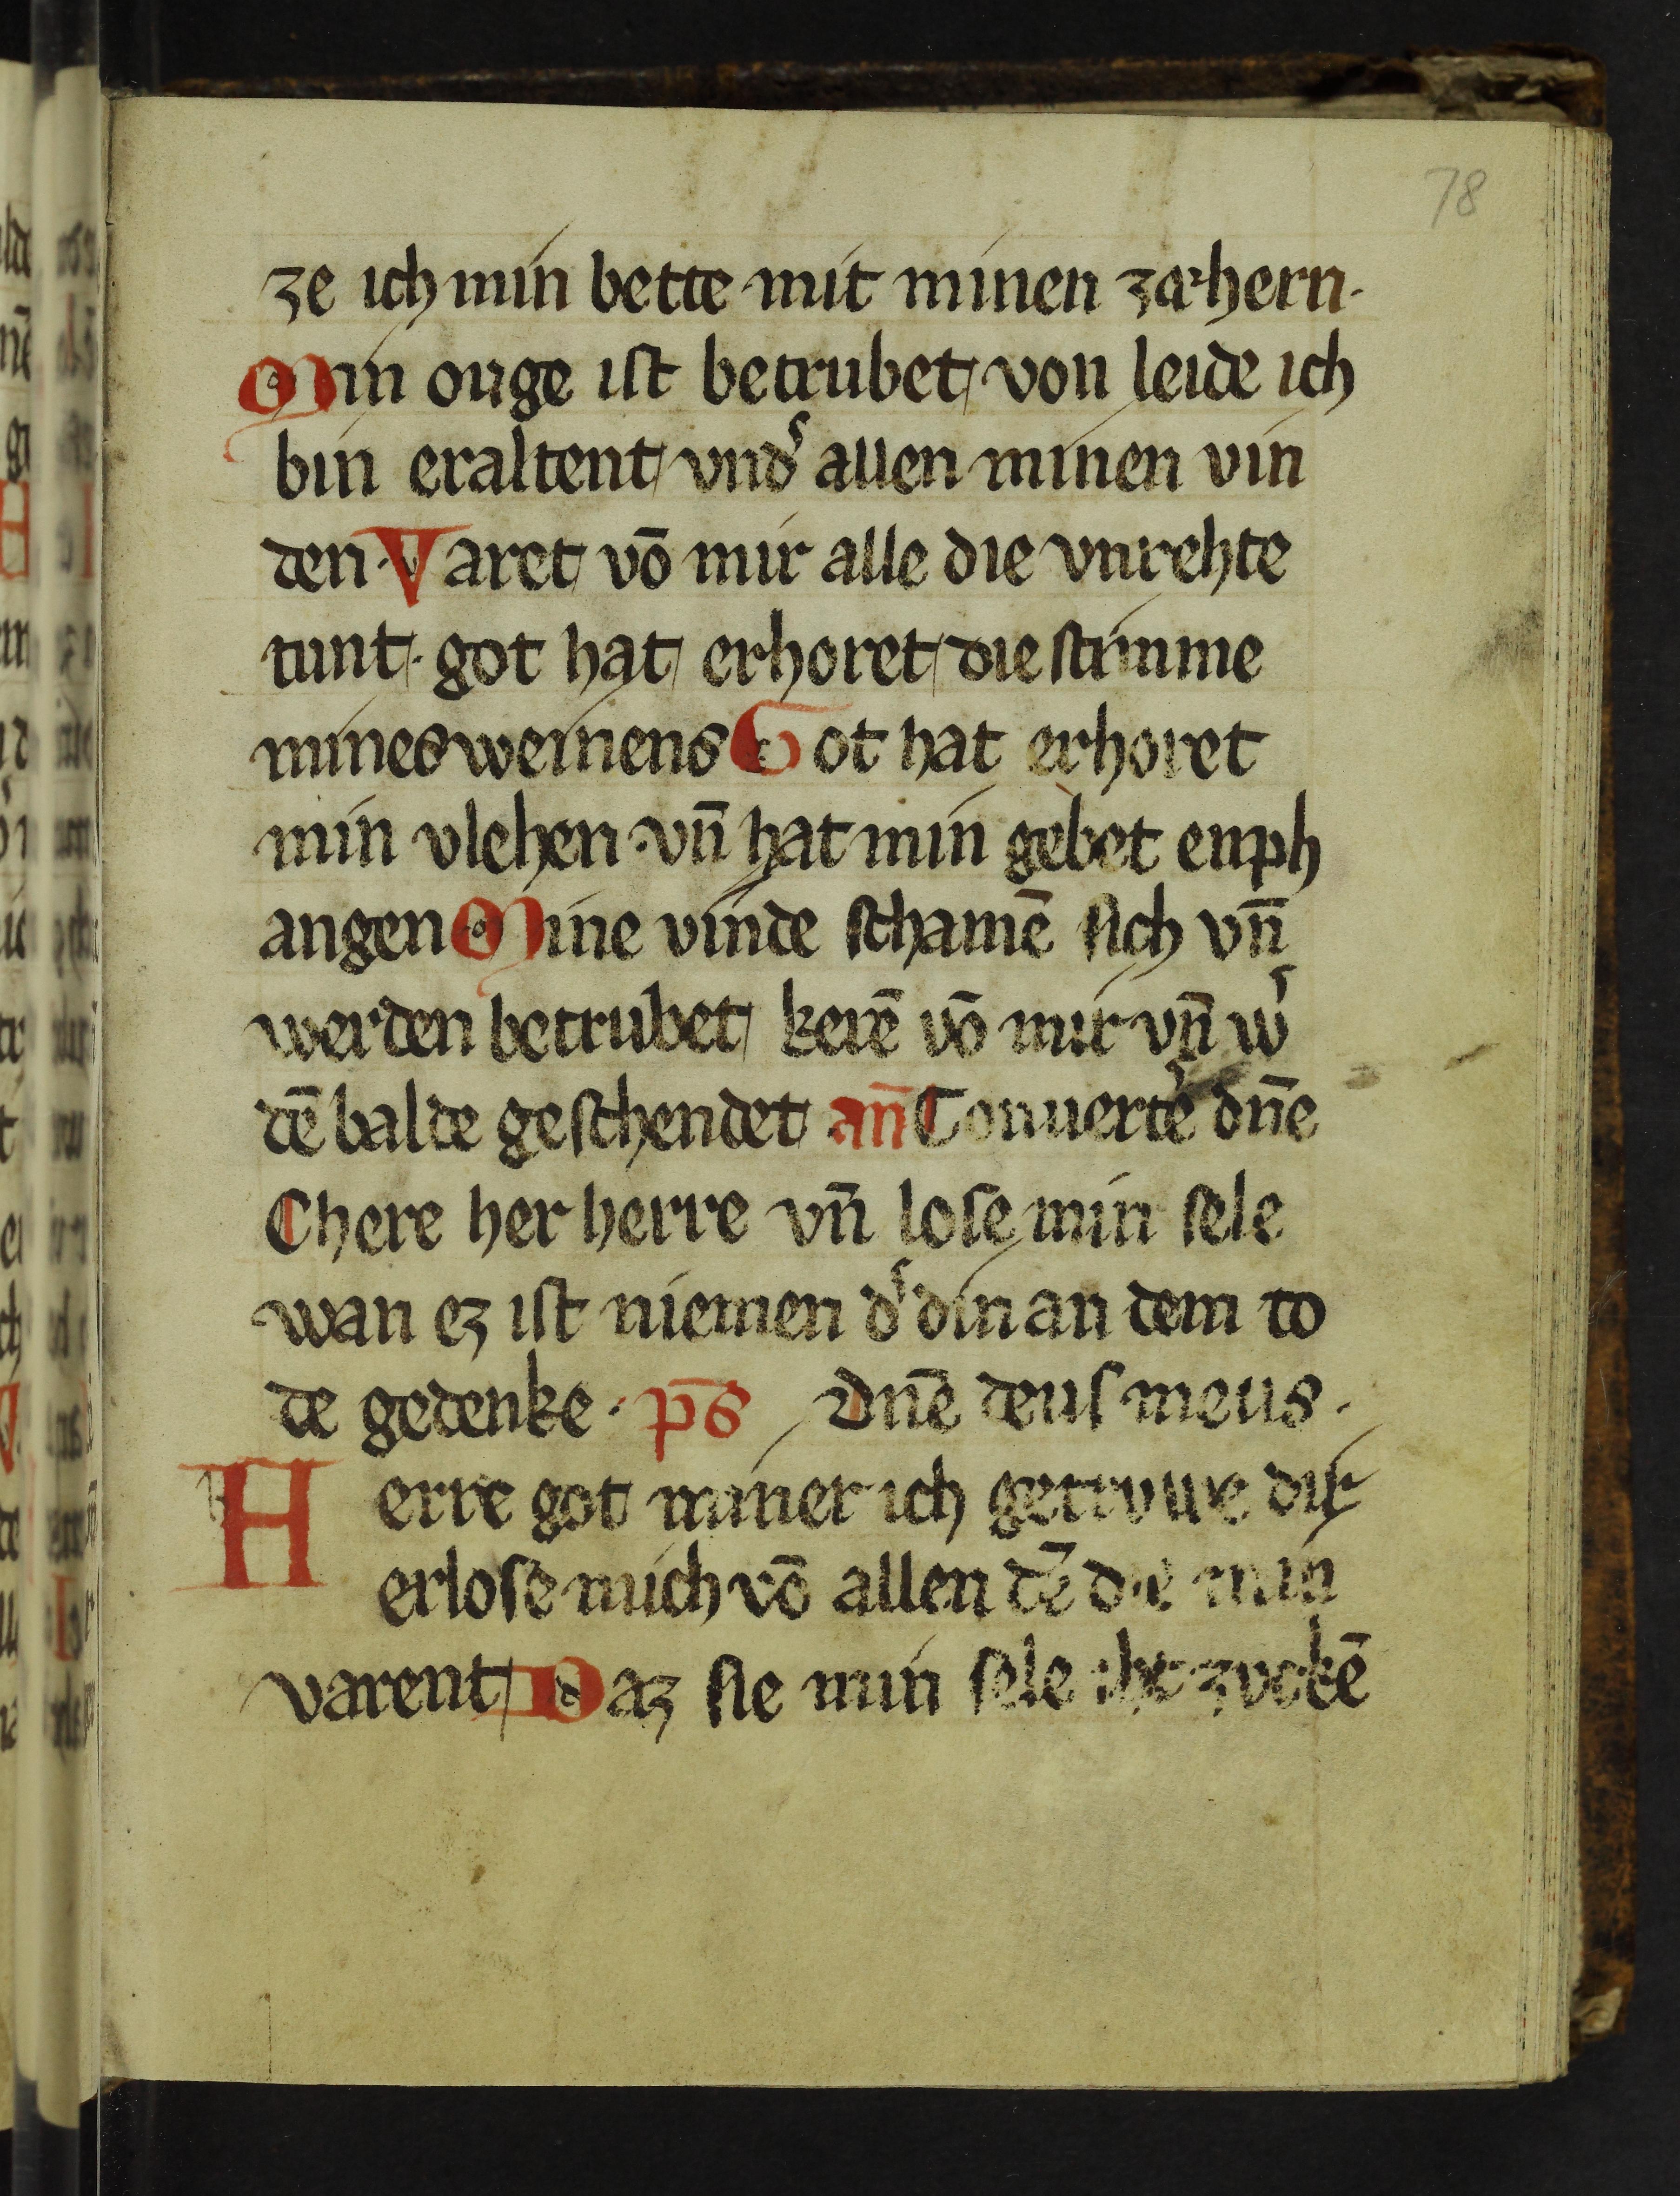 78
ze ich min bette mit minen zahern·
Min ouge ist betrubet von leide ich
bin eraltent vnd͛ allen minen vin
den· Varet vō mir alle die vnrehte
tunt· got hat erhoret die stimme
mines weinens Got hat erhoret
min vlehen· vn̄ hat min gebet enph
angen Mine vinde schamē sich vn̄
werden betrubet kerē vō mir vn̄ w͛
dē balde geschendet an̄ Conuerte dn̄e
Chere her herre vn̄ lose min sele
wan ez ist niemen d͛ din an dem to
de gedenke· ps̄ Dn̄e deus meus·
Herre got miner ich getruwe dir
erlose mich vō allen dē die min
varent Daz sie min sele iht zvckē